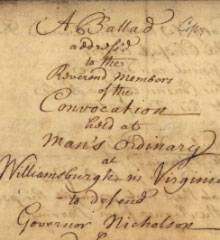 A Ballad Copy
address'd
to the
Reverend Members
of the
Convocation
held at
Man's Ordinary
at
Williamsburgh in Virginia
to defend
Governor Nicholson